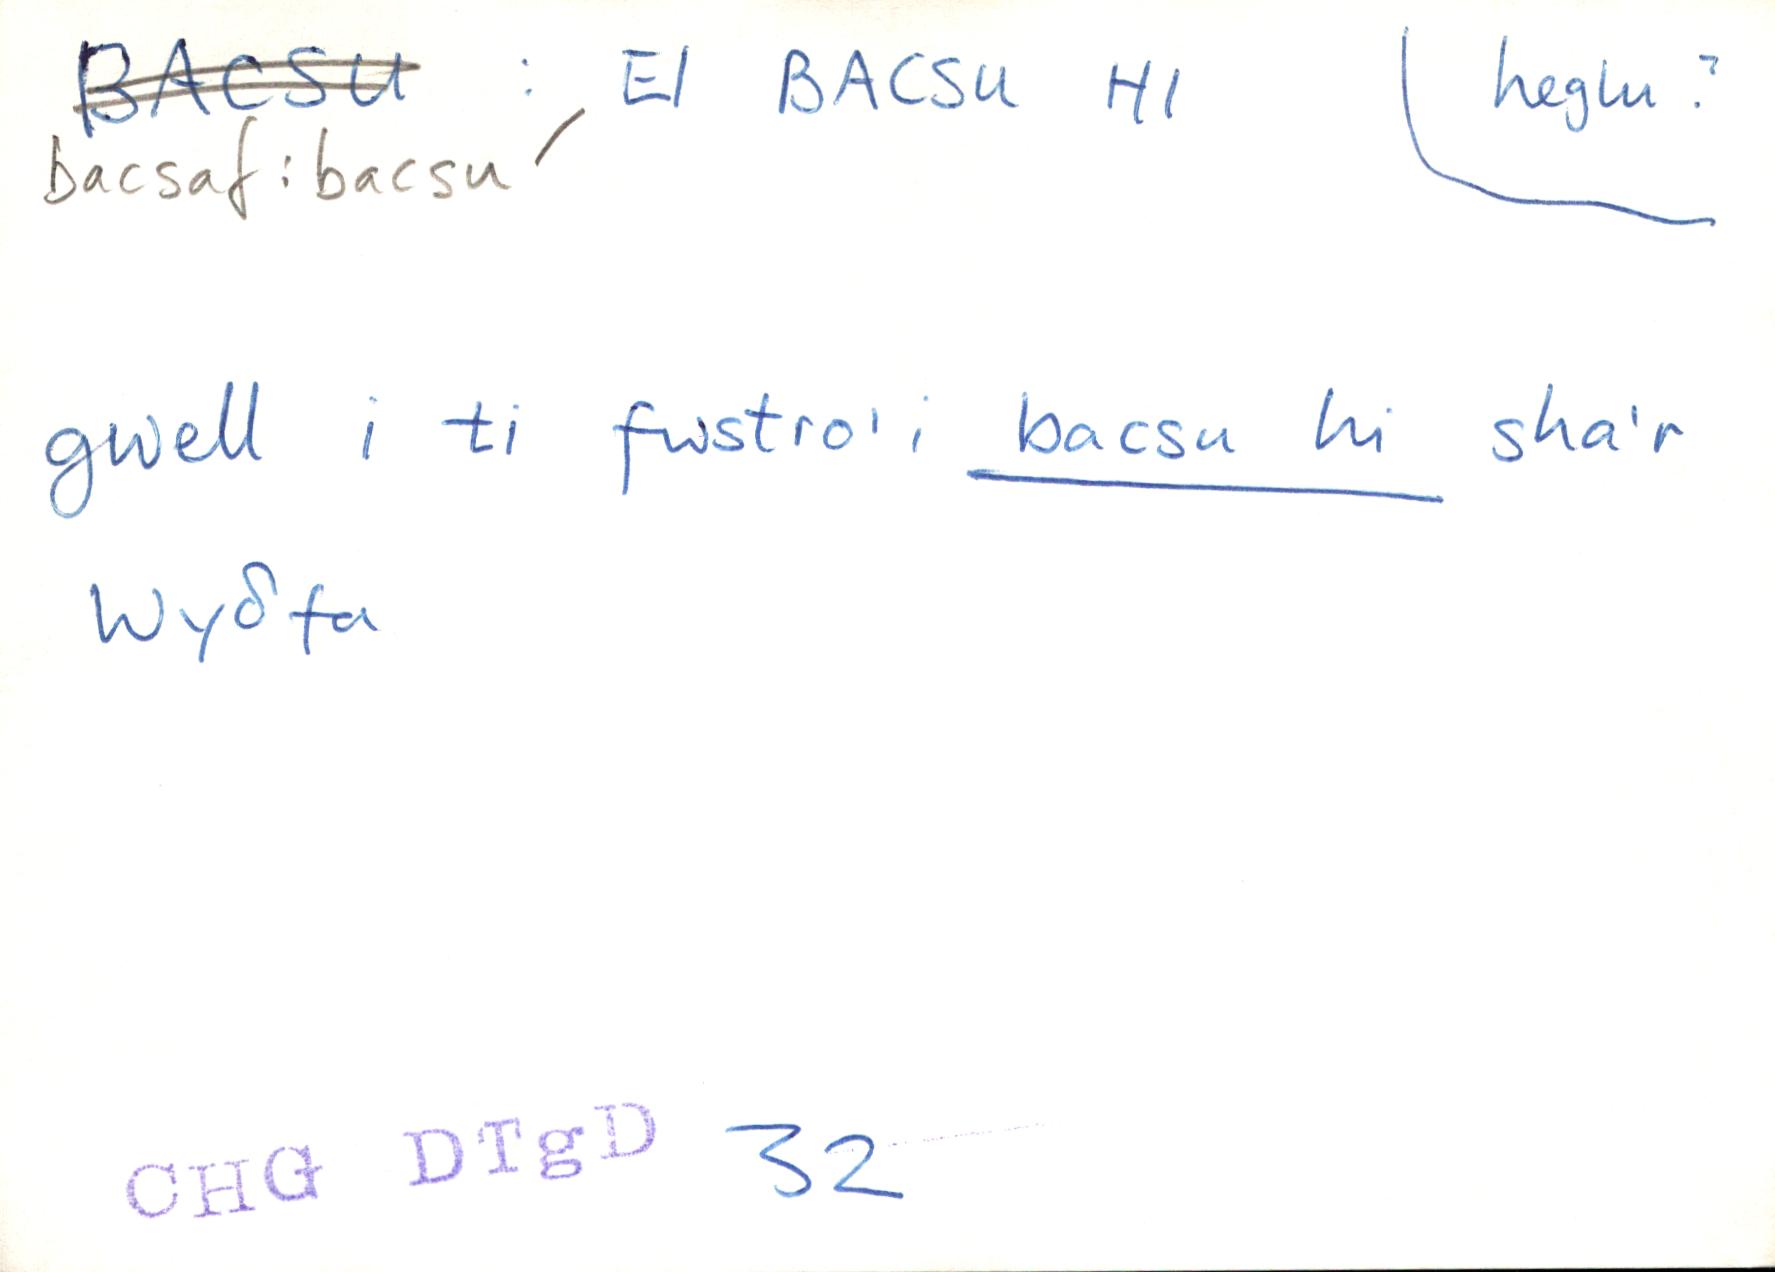 BACSU : EI BACSU HI heglu?
bacsaf: bacsu
gwell i ti fwstro'i bacsu hi sha'r
Wyδfa
CHG DTgD 32